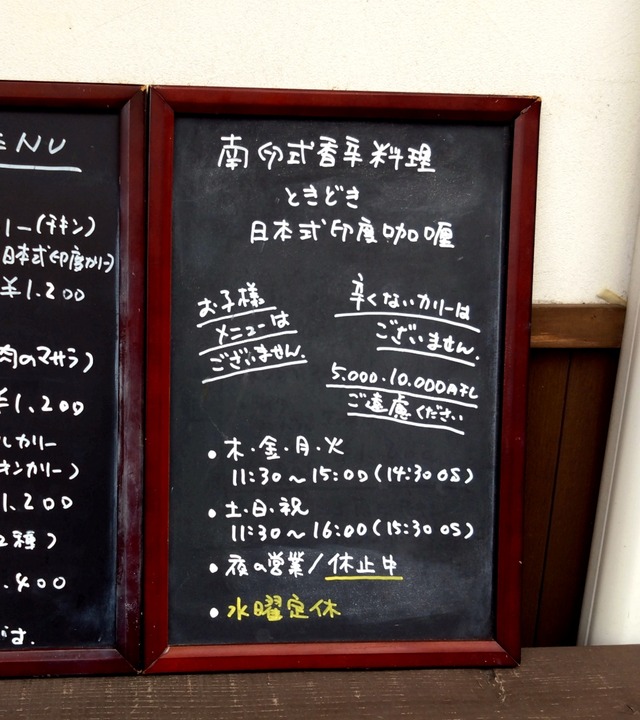 ENU
リー(チキン)
日本式印度カリー)
¥1.200
肉のマサラ)
¥1,200
ルカリー
キンカリー)
1.200
2種)
.400
です.
南印式香辛料理
ときどき
日本式印度咖喱
お子様
メニューは
ございません.
辛くないカリーは
ございません.
5.000.10.000円札
ご遠慮ください
・木・金・月・火
11:30〜15:00(14:30 OS)
・土・日・祝
11:30〜16:00(15:30 OS)
・夜の営業/休止中
・水曜定休